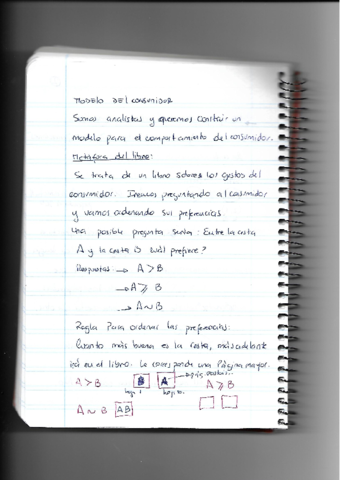 MODELO DEL CONSUMIDOR
Somos analistas y queremos construir un
modelo para el comportamiento del consumidor.
Metáfora del libro:
Se trata de un libro sobre los gustos del
consumidor. Iremos preguntando al consumidor
y vamos ordenando sus preferencias.
Una posible pregunta sería: Entre la cesta
A y la cesta B ¿cuál prefiere?
Respuestas → A > B
→ A ≥ B
→ A ~ B
Regla para ordenar las preferencias:
Cuanto más buena es la cesta, más adelante
irá en el libro. Le corresponde una página mayor.
A > B B A A ≥ B
A ~ B AB